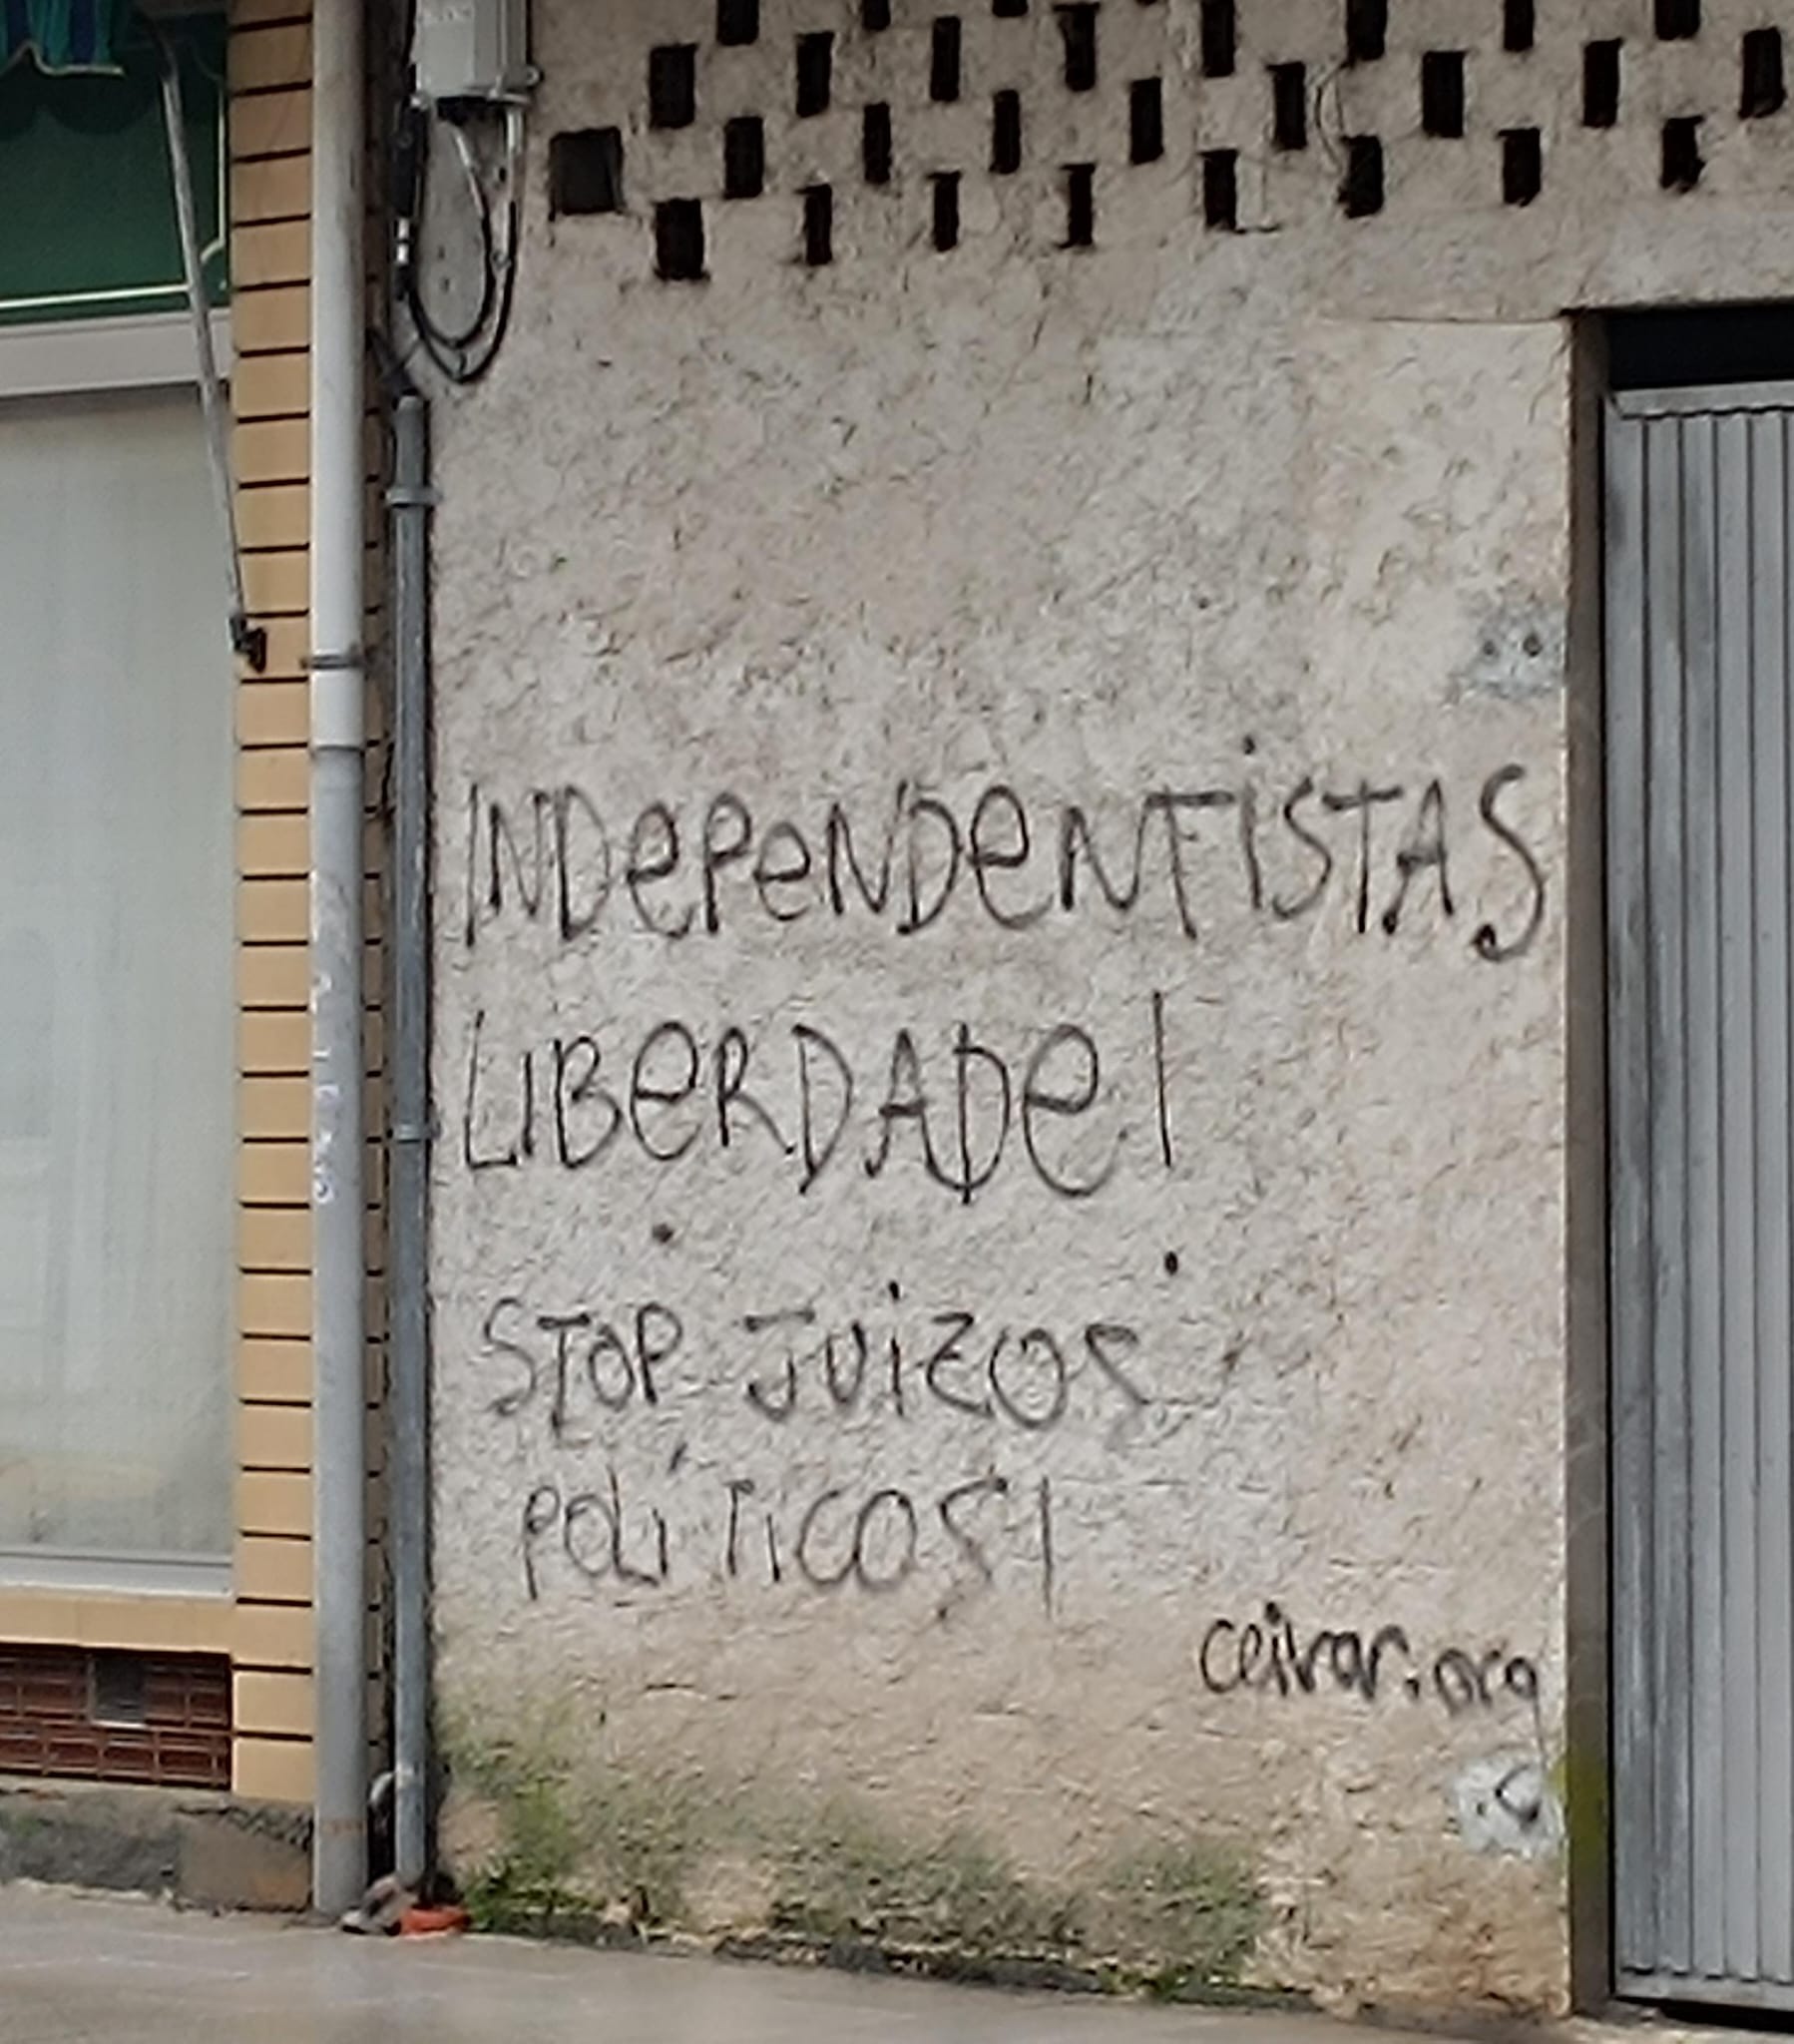 INDePeNDeNTiSTAS
LIBeRDADe!
STOP JUiZOS
POLÍTiCOS!
ceivar.org